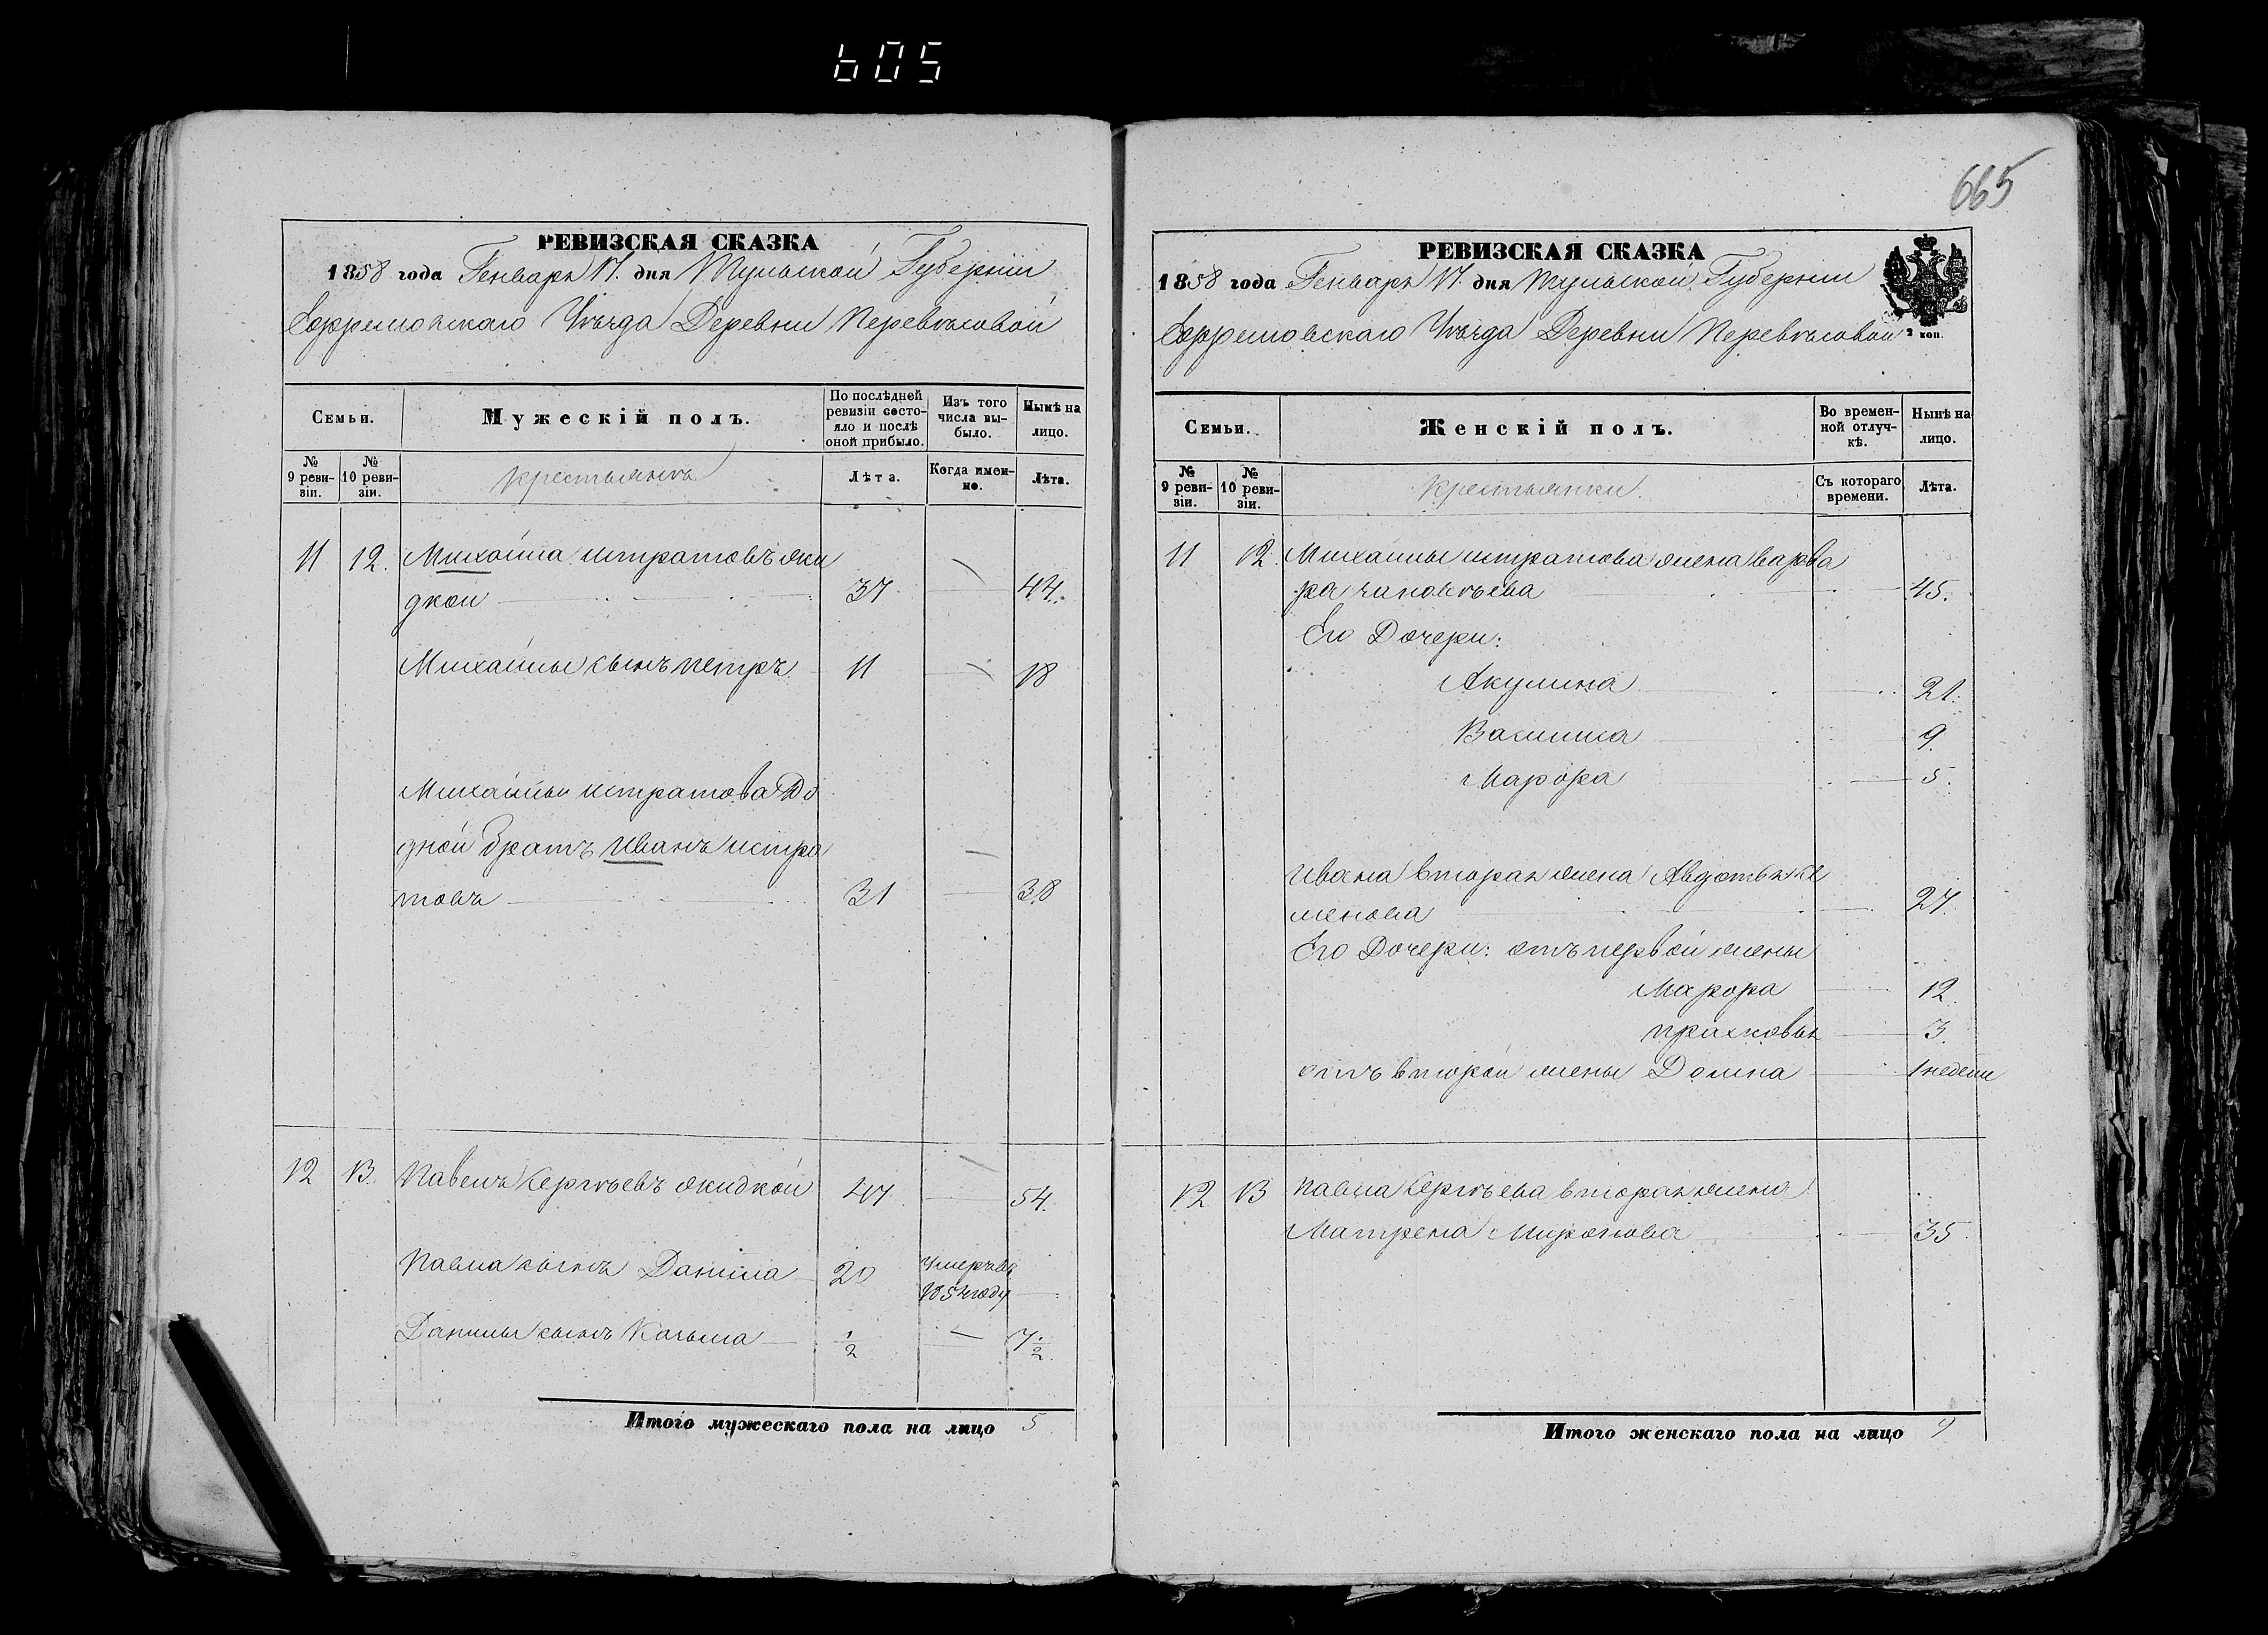 605
665
РЕВИЗСКАЯ СКАЗКА
1858 года Генваря 17. дня Тульской Губерніи
Ефремовскаго Уѣзда Деревни Перевѣсовой
Семьи.
Мужескій полъ.
По послѣдней ревизіи состояло и послѣ оной прибыло.
Изъ того числа выбыло.
Нынѣ на лицо.
№ 9 ревизіи.
№ 10 ревизіи.
крестьянъ
Лѣта.
Когда именно.
Лѣта.
11 12. Михайла истратовъ жи
дкой 37 44.
Михайлы сынъ петръ 11 18
Михайлы истратова Ро
дной братъ иванъ истра
товъ 31 38
12 13. Павелъ Сергѣевъ жидкой 47 54.
Павла сынъ Данила 20 умеръ въ
1854 году
Данилы сынъ Козьма ½ 7½
Итого мужескаго пола на лицо 5
РЕВИЗСКАЯ СКАЗКА
1858 года Генваря 17. дня Тульской Губерніи
Ефремовскаго Уѣзда Деревни Перевѣсовой
2 коп.
Семьи.
Женскій полъ.
Во временной отлучкѣ.
Нынѣ на лицо.
№ 9 ревизіи.
№ 10 ревизіи.
крестьянки.
Съ котораго времени.
Лѣта.
11 12. Михайлы истратова жена варва
ра 45.
Его Дочери:
Акулина 21.
Васлиса 9.
Марфа 5.
ивана вторая жена Авдотья се
менова 27.
Его Дочери: отъ первой жены
Марфа 12.
прасковья 3.
отъ второй жены Домна 1 недели
12 13 павла Сергѣева вторая жена
Матрена Миронова 35.
Итого женскаго пола на лицо 9